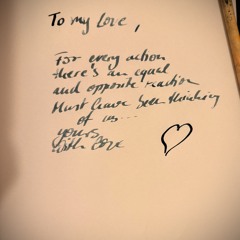 To my Love,
For every action
there's an equal
and opposite reaction
Must have been thinking
of us...
yours,
with love